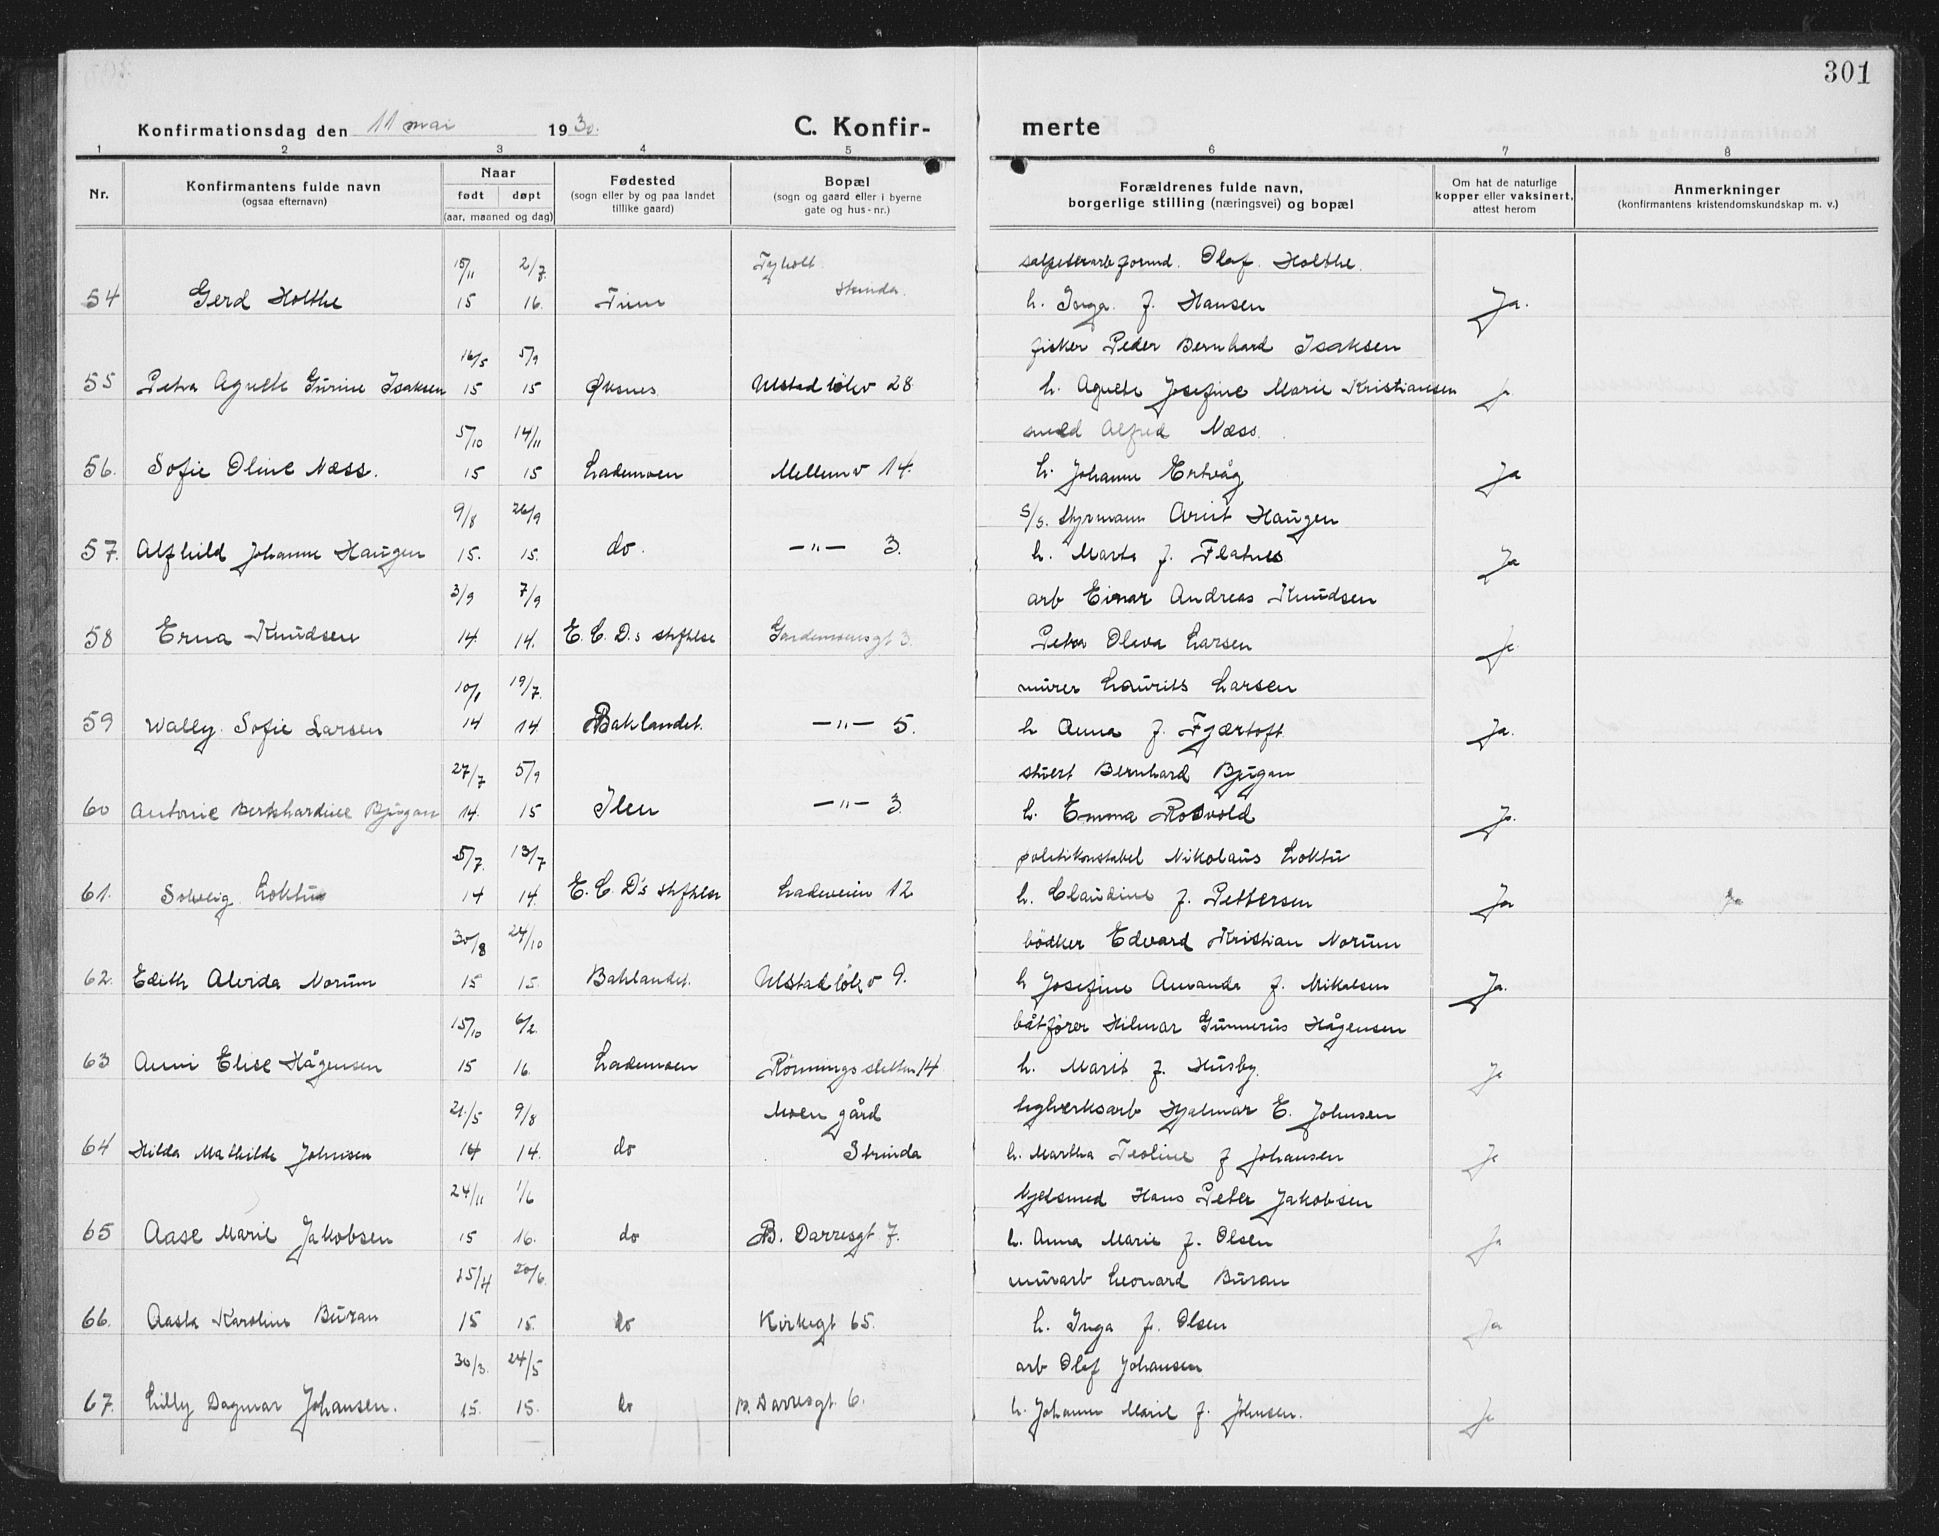 301
Konfirmationsdag den 11 mai 1930. C. Konfir- merte
1 2 3 4 5 6 7 8
Nr.
Konfirmantens fulde navn
(ogsaa efternavn)
Naar
født døpt
(aar, maaned og dag)
Fødested
(sogn eller by og paa landet
tillike gaard)
Bopæl
(sogn og gaard eller i byerne
gate og hus-nr.)
Forældrenes fulde navn,
borgerlige stilling (næringsvei) og bopæl
Om hat de naturlige
kopper eller vaksinert,
attest herom
Anmerkninger
(konfirmantens kristendomskundskap m. v.)
15/11 2/7 Tyholt Olaf Holthe.
54 Gerd Holthe 15 16. Strinda h. Inga f. Hansen Ja.
16/5 5/9 fisker Peder Bernhard Isaksen
55 Petra Agnethe Gurine Isaksen 15 15 Øksnes Ulstadløkv 28 h. Agnethe Josefine Marie Kristiansen Ja
5/10 14/11 smed Alfred Næss.
56. Sofie Oline Næss. 15 15 Lademoen Mellemv 14. h. Johanne Ertvåg Ja
9/8 26/9 S/s. Styrmann Arnt Haugen
57. Alfhild Johanne Haugen 15. 15. do. —"— 3. h. Marta f. Flatnes Ja
3/9 7/9 arb Einar Andreas Knudsen
58 Erna Knudsen 14. 14. E. C. D.s stiftelse Gardemoensgt 3. Petra Oleva Larsen Ja
10/1 19/7. murer Laurits Larsen
59 Wally Sofie Larsen 14 14 Baklandet. —"— 5. h Anna f. Fjærtoft Ja.
27/7 5/9 stuert Bernhard Bjugan
60 Antonie Bernhardine Bjugan 14. 15 Ilen —"— 3. h. Emma Rosvold Ja.
5/7. 13/7 politikonstabel Nikolaus Loktu
61. Solveig Loktu 14 14. E. C. D's stiftelse Ladeveien 12 h. Claudine f. Pettersen Ja Ja
30/8 24/10 bødker Edvard Kristian Norum
62. Edith Alvida Norum 15 15. Baklandet. Ulstadløkv 9. h Josefine Amanda f. Mikalsen Ja.
15/10 6/2. båtfører Hilmar Gunnerus Hågensen
63 Anni Elise Hågensen 15 16. Lademoen Rønningsletten 14 h. Marit f. Husby. Ja
21./5 9/8 Moen gård lyghverksarb Hjalmar E. Johnsen
64 Hilda Mathilde Johnsen 14 14. do Strinda h. Martha Teoline f Johansen Ja
24/11 1/6 Hans Peter Jakobsen
65 Aase Marie Jakobsen 15 16. do B. Darresgt 7. h. Anna Marie f. Olsen Ja
25/4 20/6. murarb Leonard Buran
66. Aasta Karoline Buran 15 15. do Kirkegt 65. h. Inga f. Olsen Ja
30/3. 24/5 arb Olaf Johansen
67. Lilly Dagmar Johansen. 15. 15. do B. Darresgt. 6. h. Johanne Marie f. Johnsen. Ja